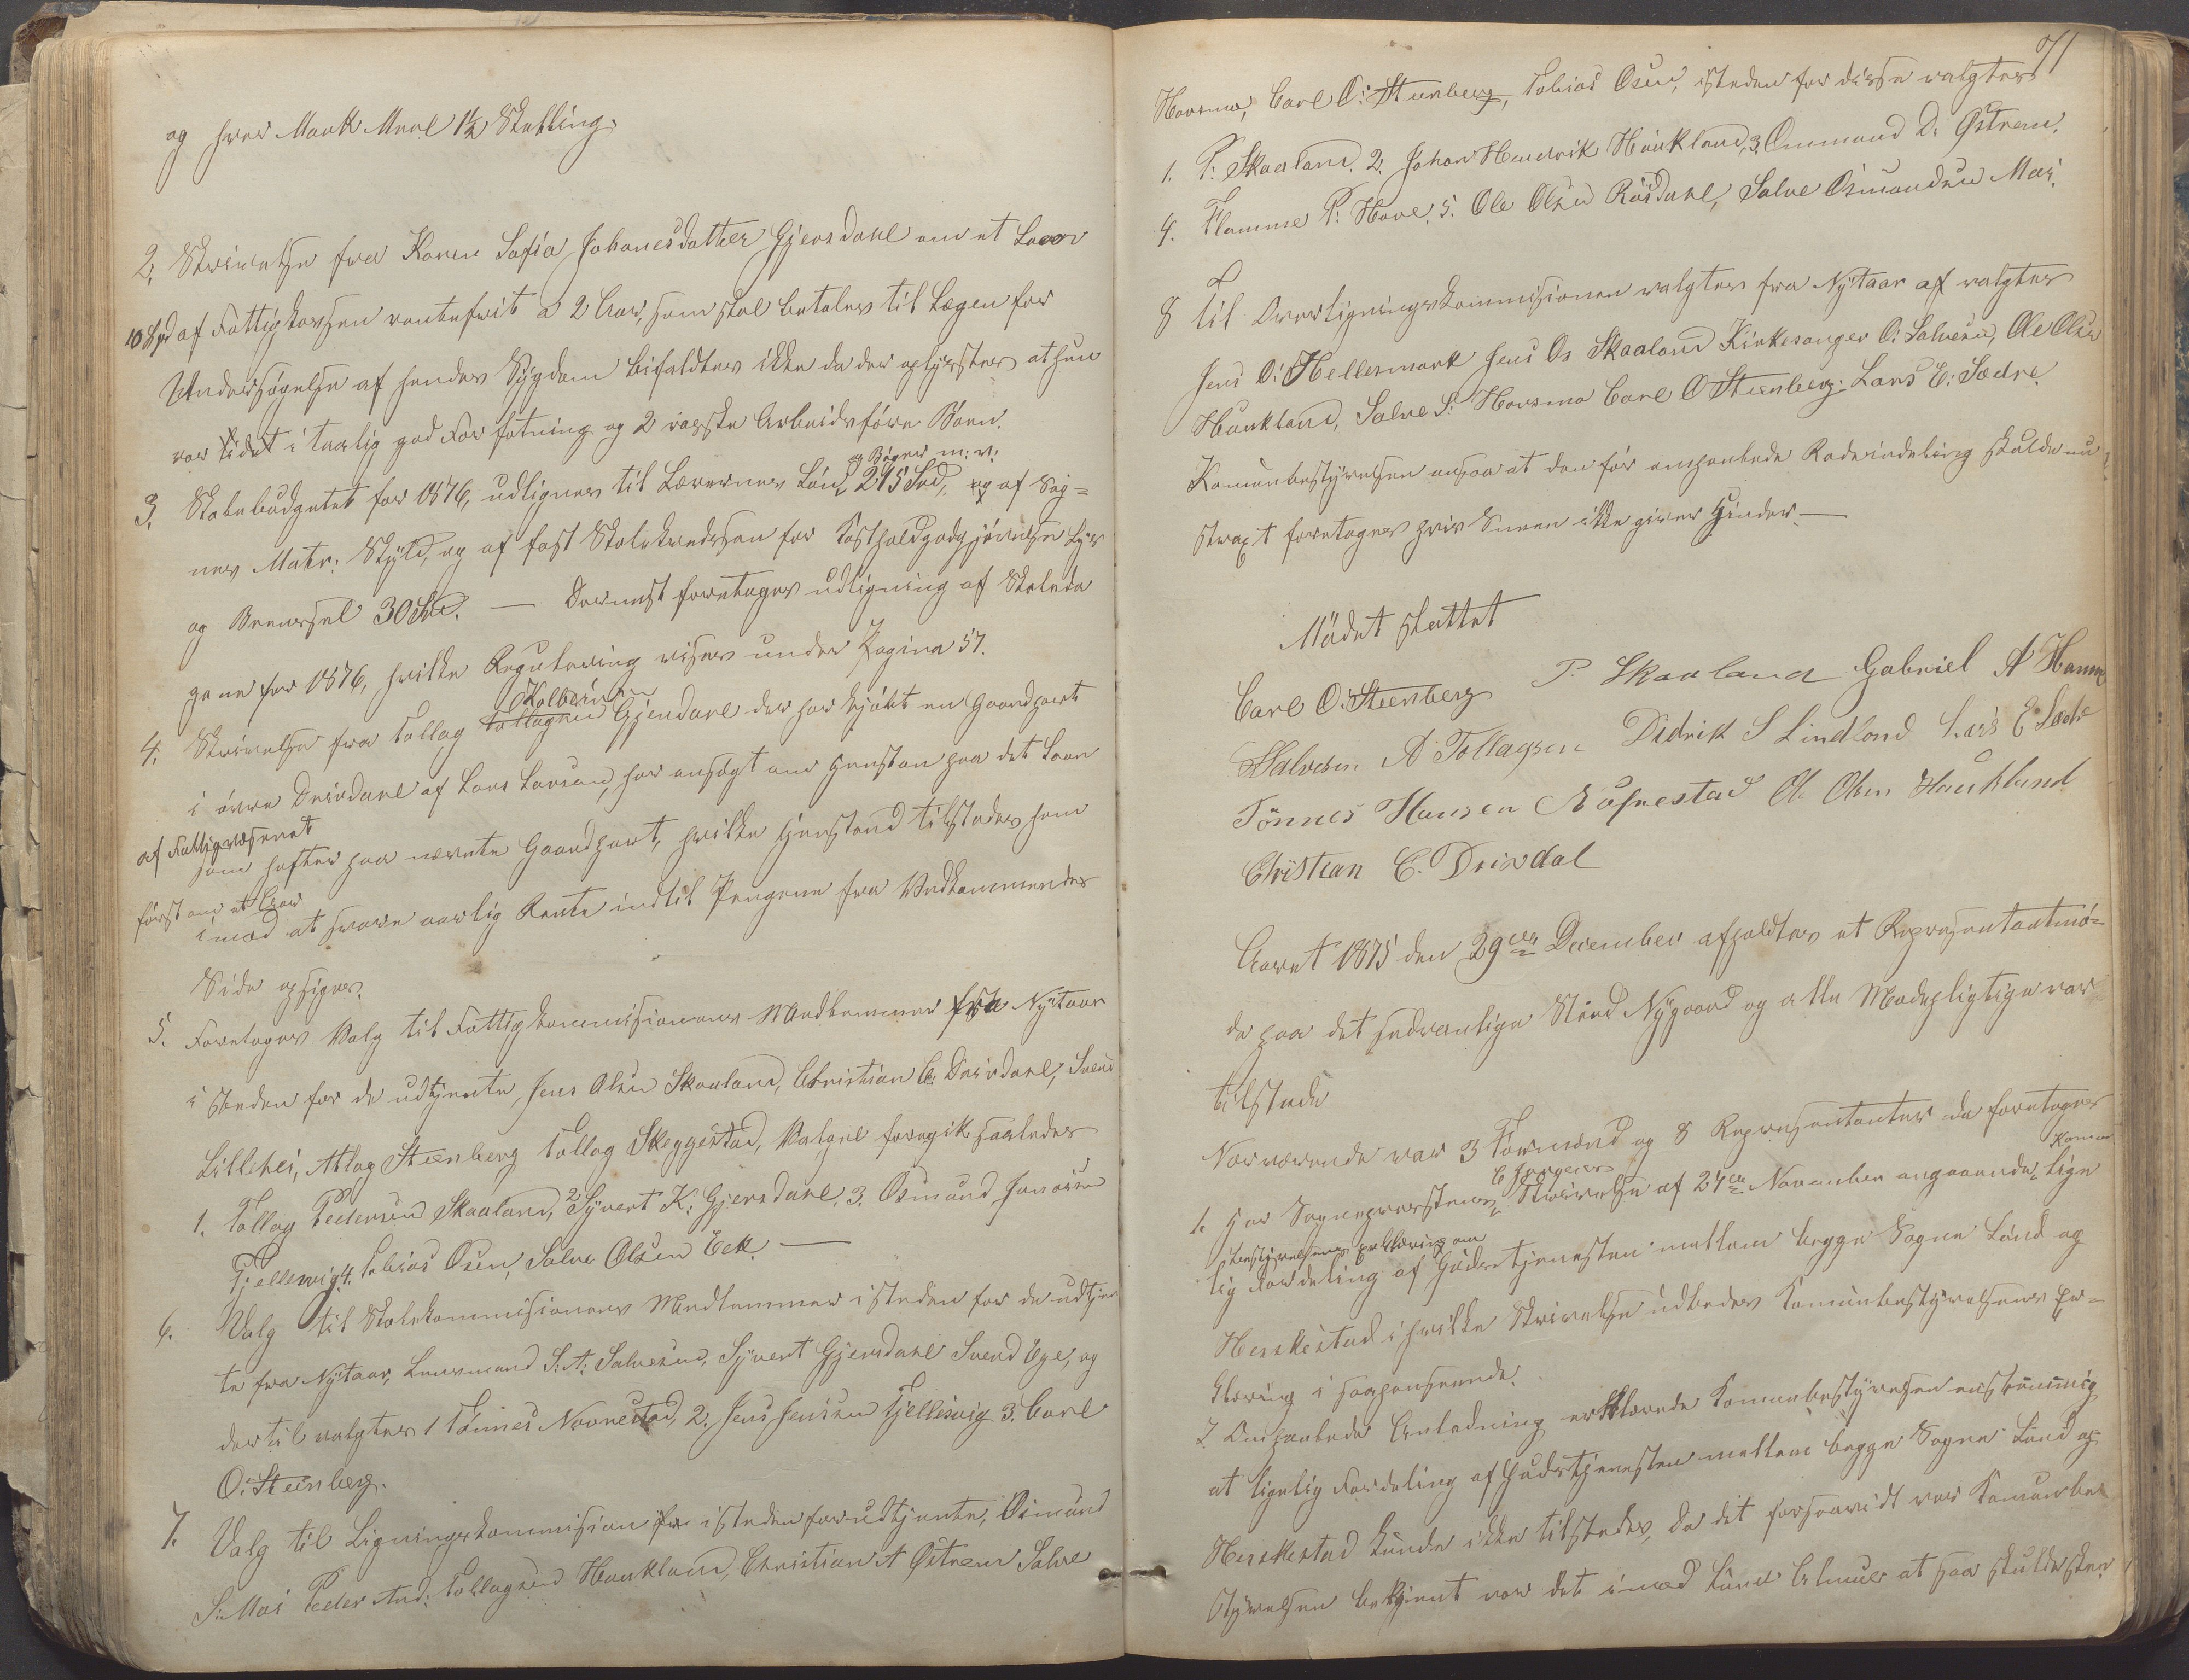 og hver Mark Meel 1½ Skilling.
2. Skrivelse fra Karen Sofia Johanesdatter Gjersdahl om et Laan
10 Spd af Fattigkassen rentefrit a 2 Aar, som skal betales til Lægen for
Undersøgelse af hendes Sygdom bifaldtes ikke da der oplystes at hun
var sidet i taalig god Forfatning og 2 raske Arbeidsføre Børn.
3. Skolebudgetet for 1876, udlignes til Lærernes Løn, og Bøger m.v. 215 Spd, og af Sog=
nes Matr: Skyld, og af fast Skolekredsen for Kostholdgodtgjørelse Lys
og Brensel 30 Spd. — Dernest foretages udligning af Skoleda
gene for 1876, hvilke Regulering vises under Pagina 57.
4. Skrivelse fra Tollag Tollagsen Gjersdahl der har kjøbt en Gaardpart
i øvre Dreisdahl af Lars Larsen, har ansøgt om Henstan paa det Laan
af Fattigvæsenet
som hefter paa nævnte Gaardpart, hvilke Henstand tilstedes ham
først om et Aar
imod at svare aarlig Rente indtil Pengene fra Vedkommendes
Side opsiges.
5. Foretages Valg til Fattigkommisionens Medlemmer fra Nytaar
i steden for de udtjente, Jens Olsen Skaaland, Christian C. Dreisdahl, Svend
Litlehei, Atlag Steenberg Tollag Skeggestad, Valget foregik saaledes
1. Tollag Pedersen Skaaland, 2 Syvert K. Gjersdahl, 3. Osmund Janasen
Tjellesvig 4. Tobias Osen, Salve Olsen Eek. —
6. Valg til Skolekommisionens Medlemmer i steden for de udtjen
te fra Nytaar, Lensmand S. A. Salvesen, Syvert Gjersdahl Svend Ege, og
dertil valgtes 1 Tönnes Navrestad, 2. Jens Jensen Tjellesvig 3. Carl
O. Steenberg.
7. Valg til Ligningskommision i steden for udtjente, Osmund
S. Moi Peder And. Tollagsen Haukland, Christian A Østrem Salve
71
Hovsmo, Carl O. Steenberg, Tobias Osen, isteden for disse valgtes
1. P. Skaaland. 2. Johan Hendrik Haukland, 3. Ommund D. Østrem.
4. Flamme P. Hove. 5. Ole Olsen Røsdahl, Salve Osmundsen Moi.
8 Til Overligningskommisionen valgtes fra Nytaar af valgtes
Jens O. Hellesmark Jens Os Skaaland Kirkesanger O. Salvesen, Ole Olsen
Haukland, Salve S. Hovsmo Carl O Steenberg. Lars E. Sædre.
Komunbestyrelsen ansaa at den før ompantede Rodeindeling skulde nu
straxt foretages hvis Sneen ikke giver Hinder —
Mödet sluttet
Carl O. Steenberg P. Skaaland Gabriel A Hamre
SSalvesen. A Tollagsen Didrik S Lindland Lars E Sædre
Tönnes Hansen Nafrestad O. Olsen Haukland
Christian C. Drivdal
Aaret 1875 den 29de December afholdtes et Representantmø=
de paa det sedvanlige Sted Nygaard og alle Mødepligtige var
tilstede
Nærværende var 3 Formænd og 8 Representanter da foretoges
1. Hr Sognepresten C Jørgensens Skrivelse af 24de November angaaende Komun
bestyrelsens erklæring om Lige
lig Fordeling af Gudstjenesten mellem begge Sogne Lund og
Heskestad i hvilke Skrivelse udbedes Komunbestyrelsens Er=
klæring i saahenseende.
I Omhandlede Anledning erklærede Komunbestyrelsen enstemmig
at ligelig Fordeling af Gudstjenesten mellem begge Sogne Lund og
Heskestad kunde ikke tilstedes, da det forsaavidt var Komunbe
styrelsen bekjent var det imod Lund Almue at saa skulde ske